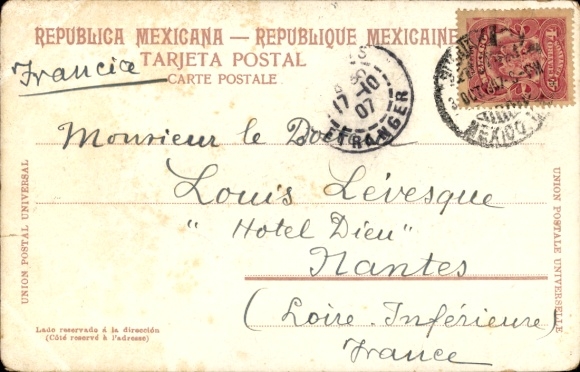 REPUBLICA MEXICANA — REPUBLIQUE MEXICAINE
TARJETA POSTAL
CARTE POSTALE
Francia
17-10
07
ETRANGER
MEXICO
Monsieur le
Louis Lévesque
"Hotel Dieu"
Nantes
(Loire-Inférieure)
France
UNION POSTAL UNIVERSAL
UNION POSTALE UNIVERSELLE
Lado reservado á la dirección
(Côté reservé à l'adresse)